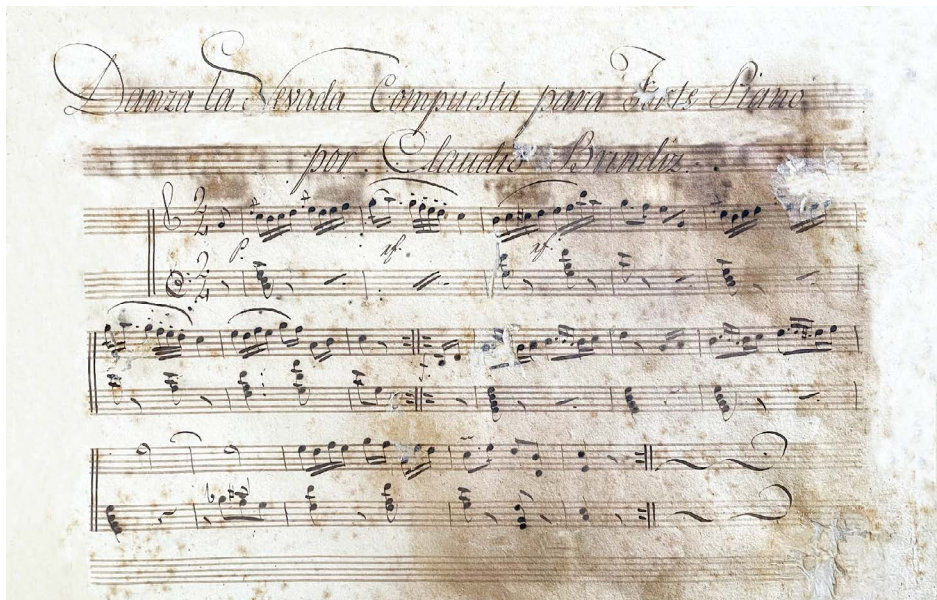 Danza la Nevada Compuesta para Forte Piano
por Claudio Brindiz.
2/4
p. sf. sf.
2/4